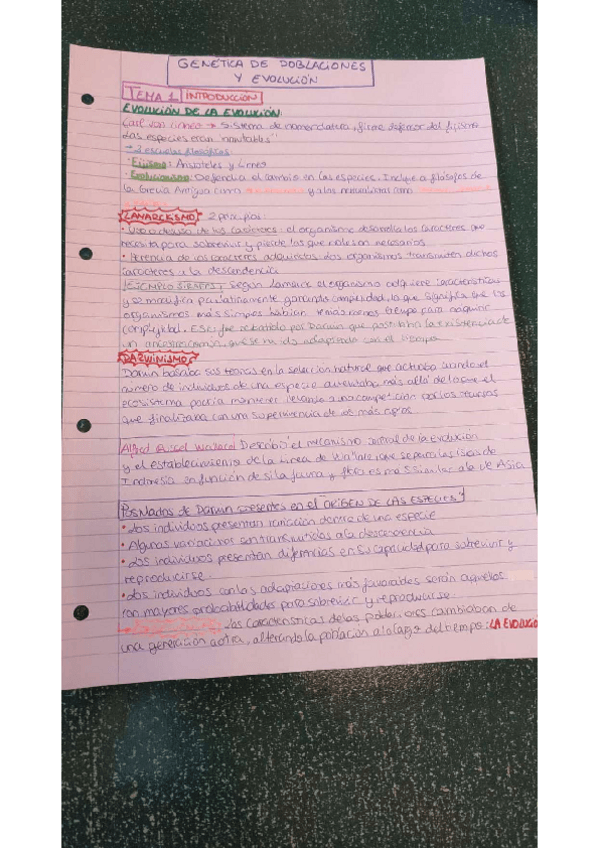 GENÉTICA DE POBLACIONES
Y EVOLUCIÓN
TEMA 1 INTRODUCCIÓN
EVOLUCIÓN DE LA EVOLUCIÓN:
Carl von Linneo → Sistema de nomenclatura, firme defensor del fijismo
"Las especies eran inmutables"
→ 2 escuelas filosóficas
· Fijismo: Aristóteles y Linneo
· Evolucionismo: Defendía el cambio en las especies. Incluye a filósofos de
la Grecia Antigua como y a los naturalistas como
LAMARCKISMO 2 principios:
· Uso o desuso de los caracteres: el organismo desarrolla los caracteres que
necesita para sobrevivir y pierde los que no le son necesarios
· Herencia de los caracteres adquiridos. Los organismos transmiten dichos
caracteres a la descendencia
EJEMPLO JIRAFAS: Según Lamarck el organismo adquiere características
y se modifica paulatinamente ganando complejidad, lo que significa que los
organismos más simples habían tenido menos tiempo para adquirir
complejidad. Esto fue rebatido por Darwin que postulaba la existencia de
un ancestro común, que se ha ido adaptando con el tiempo
DARWINISMO
Darwin basaba sus teorías en la selección natural que actuaba cuando el
número de individuos de una especie aumentaba más allá de lo que el
ecosistema podría mantener llevando a una competición por los recursos
que finalizaba con una supervivencia de los más aptos
Alfred Russel Wallace: Describió el mecanismo central de la evolución
y el establecimiento de la Línea de Wallace, que separa las islas de
Indonesia en función de si la fauna y flora es más similar a la de Asia
Postulados de Darwin presentes en el "ORIGEN DE LAS ESPECIES"
· Los individuos presentan variación dentro de una especie
· Algunas variaciones son transmitidas a la descendencia
· Los individuos presentan diferencias en su capacidad para sobrevivir y
reproducirse
· Los individuos con las adaptaciones más favorables serán aquellos
con mayores probabilidades para sobrevivir y reproducirse
las características de las poblaciones cambiaban de
una generación a otra, alterando la población a lo largo del tiempo: LA EVOLUCIÓ